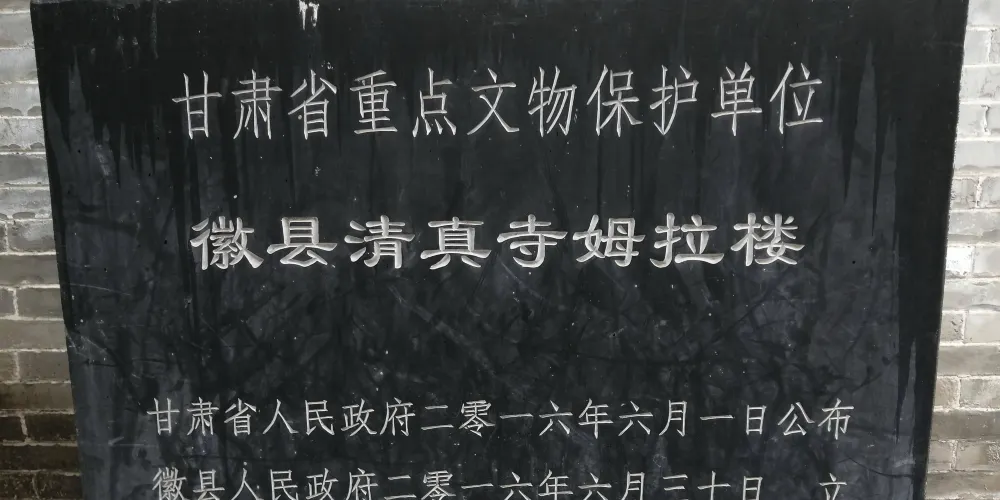 甘肃省重点文物保护单位
徽县清真寺姆拉楼
甘肃省人民政府二零一六年六月一日公布
徽县人民政府二零一六年六月三十日 立